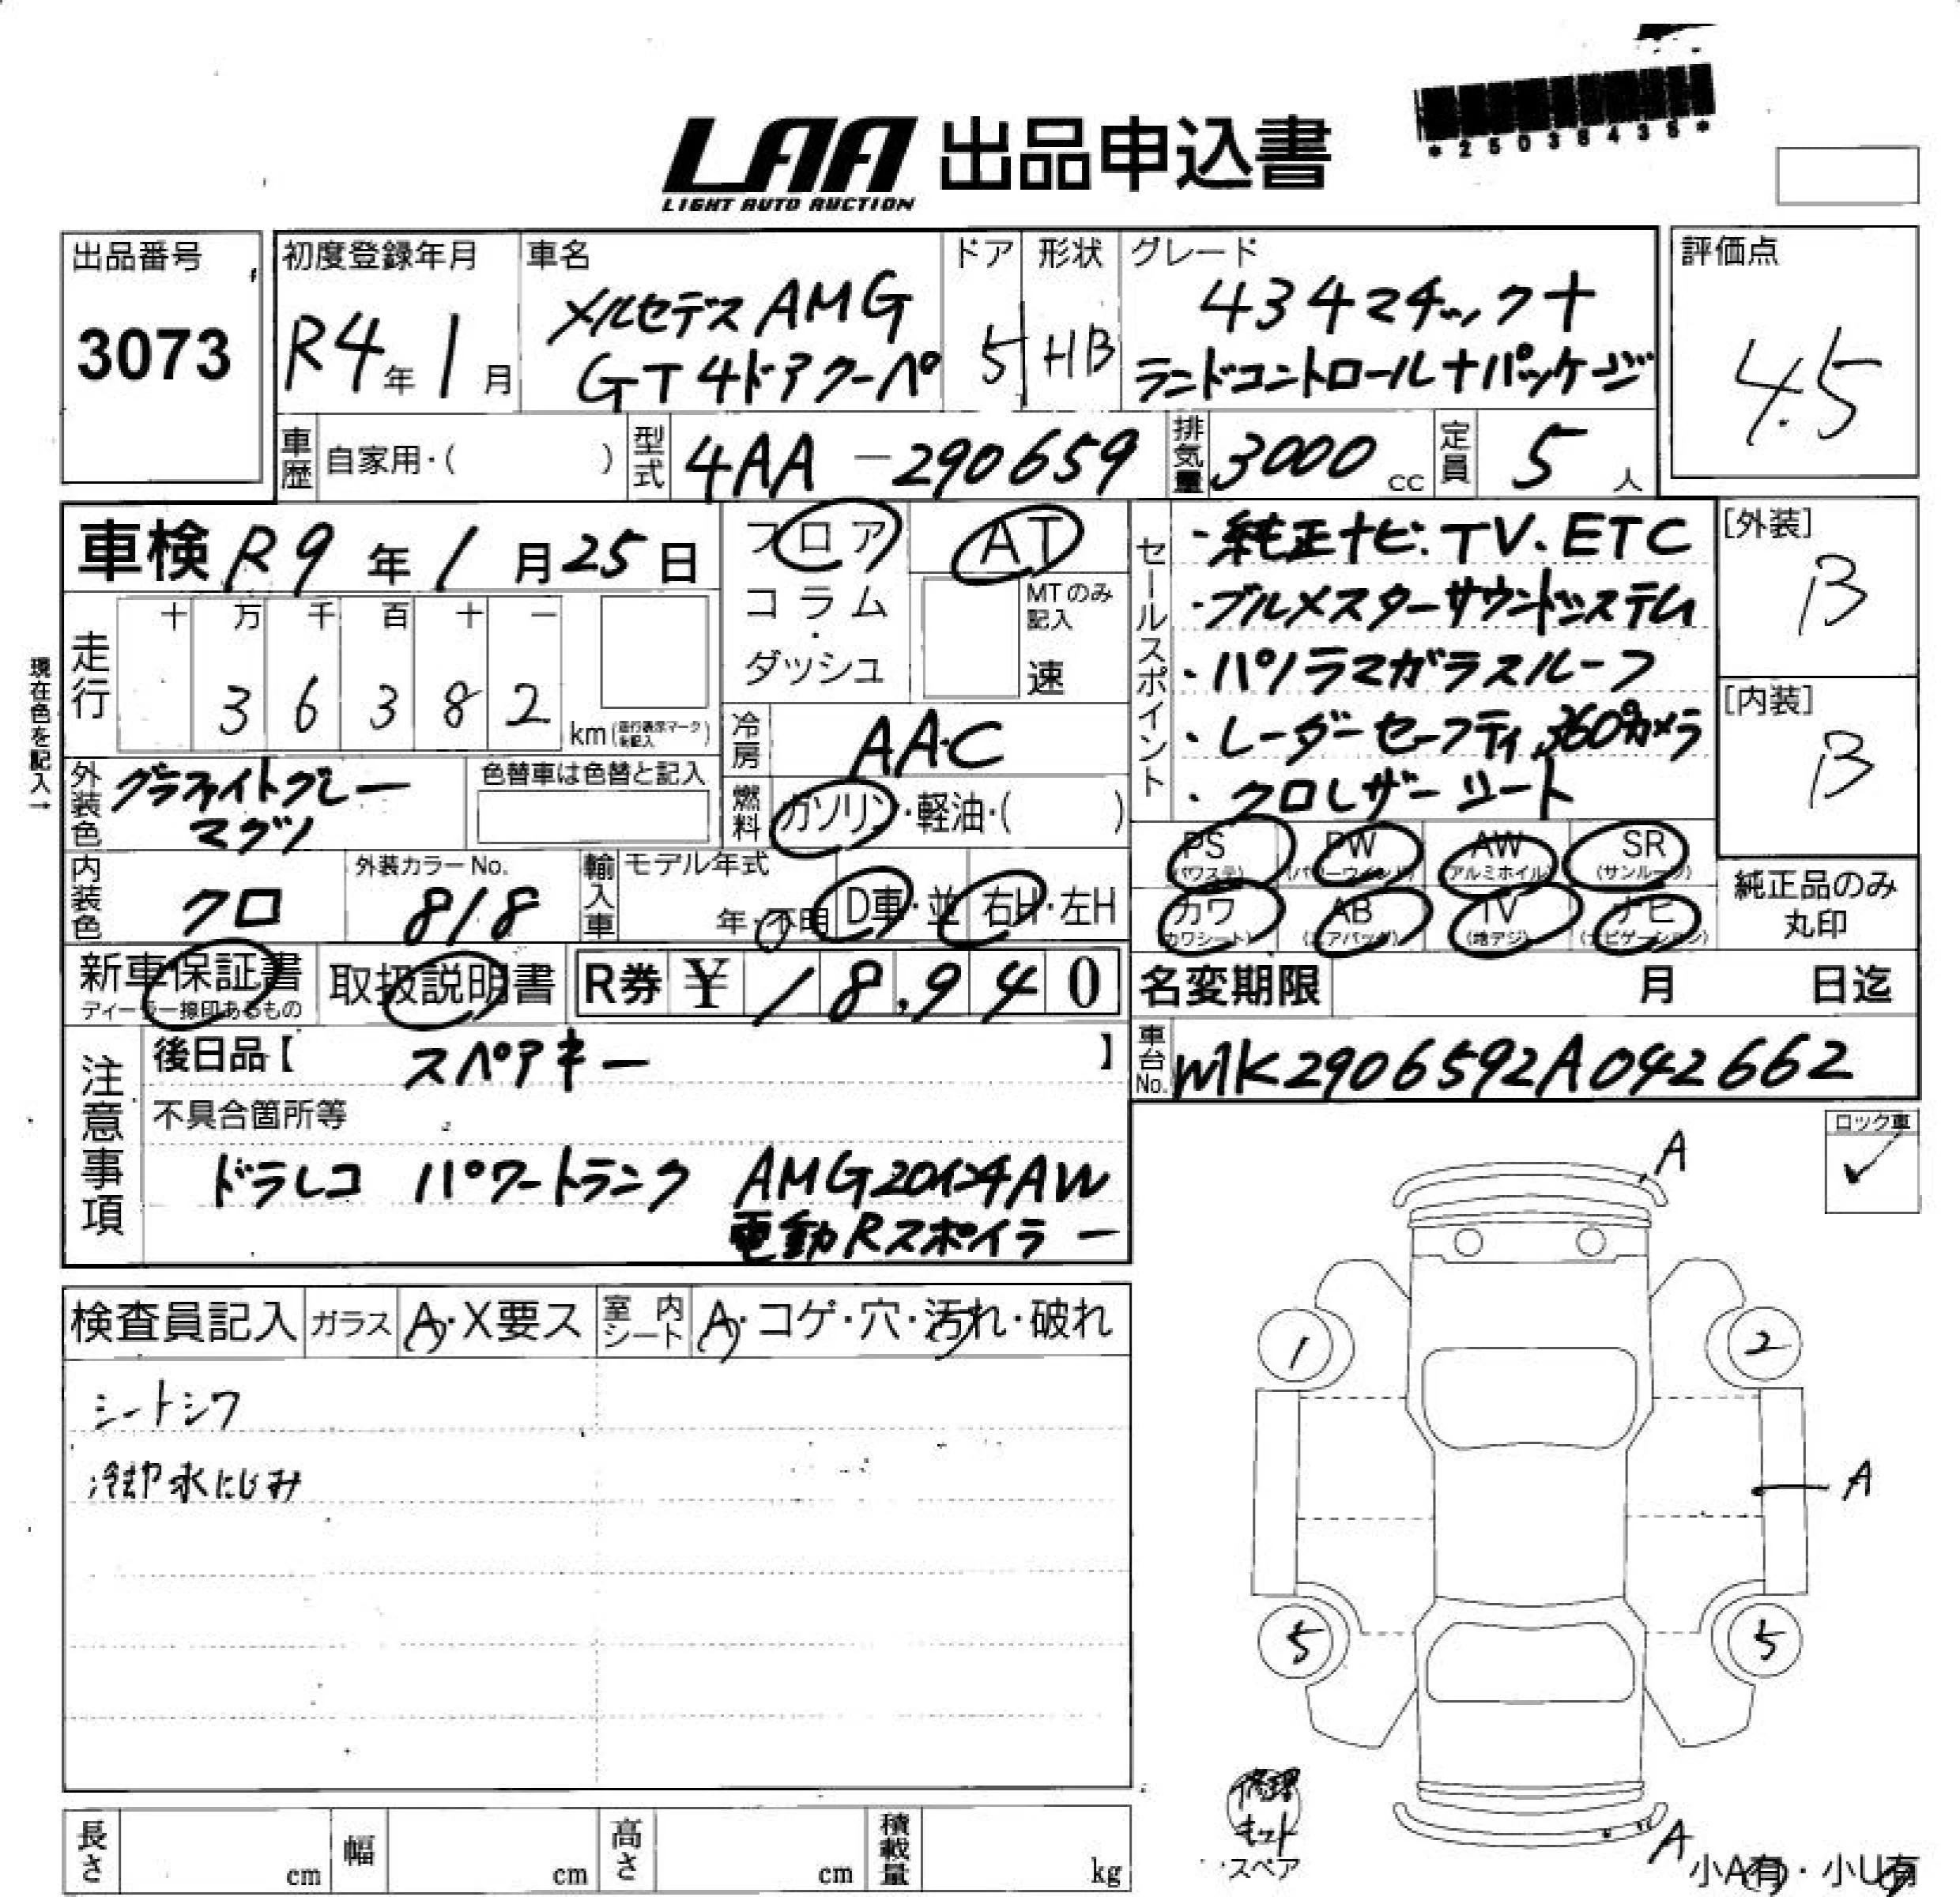 *25036435*
LAA 出品申込書
LIGHT AUTO AUCTION
出品番号
3073
初度登録年月
R4年1月
車名
メルセデスAMG
GT4ドアクーペ
ドア
5
形状
HB
グレード
434マチック+
ランドコントロール+パッケージ
評価点
4.5
車歴 自家用・( )
型式 4AA-290659
排気量 3000cc
定員 5人
車検 R9年1月25日
フロア
コラム
・
ダッシュ
AT
MTのみ
記入
速
セールスポイント
・純正ナビ.TV.ETC
・ブルメスターサウンドシステム
・パノラマガラスルーフ
・レーダーセーフティ 360°カメラ
・クロレザーシート
[外装]
B
[内装]
B
現在色を記入→
走行
十 万 千 百 十 一
3 6 3 8 2
km(走行表示マークを記入)
冷房 AAC
外装色 グラファイトグレー
マグノ
色替車は色替と記入
燃料 ガソリン・軽油・( )
PS (パワステ)
PW (パワーウインド)
AW (アルミホイル)
SR (サンルーフ)
カワ (カワシート)
AB (エアバッグ)
TV (地デジ)
ナビ (ナビゲーション)
純正品のみ
丸印
内装色 クロ
外装カラーNo.
818
輸入車
モデル年式
年・不明
D車・並
右H・左H
新車保証書
ディーラー捺印あるもの
取扱説明書
R券 ¥ 18,940
名変期限 月 日迄
車台No. MK2906592A042662
注意事項
後日品【 スペアキー 】
不具合箇所等
ドラレコ パワートランク AMG20インチAW
電動Rスポイラー
ロック車
✓
検査員記入
ガラス A・X要ス
室内シート A・コゲ・穴・汚れ・破れ
シートシワ
冷却水にじみ
A
1
2
A
5
5
A
修理
キット
・スペア
小A有・小U有
長さ cm
幅 cm
高さ cm
積載量 kg